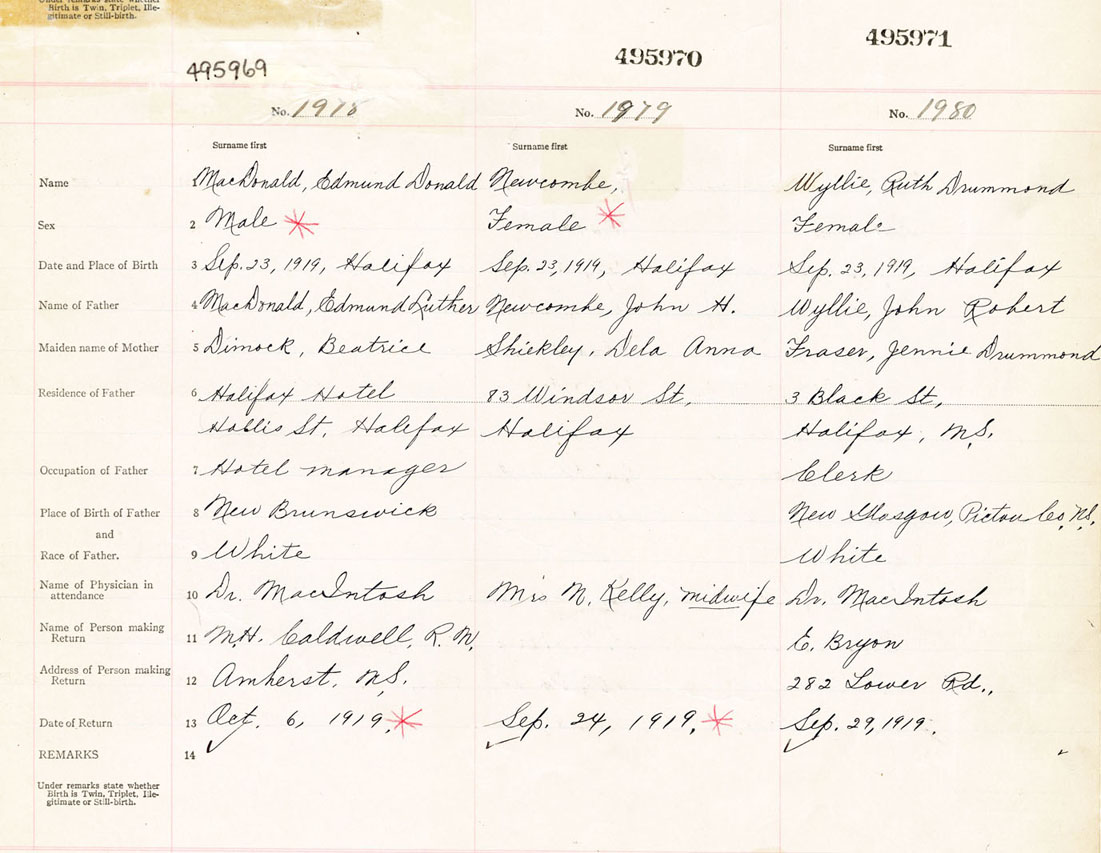 Under remarks state whether
Birth is Twin, Triplet, Ille-
gitimate or Still-birth.
495969 495970 495971
No. 1978 No. 1979 No. 1980
Surname first Surname first Surname first
Name 1 MacDonald, Edmund Donald Newcombe, Wyllie, Ruth Drummond
Sex 2 Male Female Female
Date and Place of Birth 3 Sep. 23, 1919, Halifax Sep. 23, 1919, Halifax Sep. 23, 1919, Halifax
Name of Father 4 MacDonald, Edmund Luther Newcombe, John H. Wyllie, John Robert
Maiden name of Mother 5 Dimock, Beatrice Shiekley, Dela Anna Fraser, Jennie Drummond
Residence of Father 6 Halifax Hotel 83 Windsor St, 3 Black St,
Hollis St, Halifax Halifax Halifax, N.S.
Occupation of Father 7 Hotel manager Clerk
Place of Birth of Father 8 New Brunswick New Glasgow, Pictou Co, N.S.
and
Race of Father. 9 White White
Name of Physician in
attendance 10 Dr. MacIntosh Mrs N. Kelly, midwife Dr. MacIntosh
Name of Person making
Return 11 M.H. Caldwell, R.N. E. Bryon
Address of Person making
Return 12 Amherst, N.S. 282 Lower Rd.,
Date of Return 13 Oct. 6, 1919. Sep. 24, 1919. Sep. 29, 1919.
REMARKS 14
Under remarks state whether
Birth is Twin, Triplet, Ille-
gitimate or Still-birth.